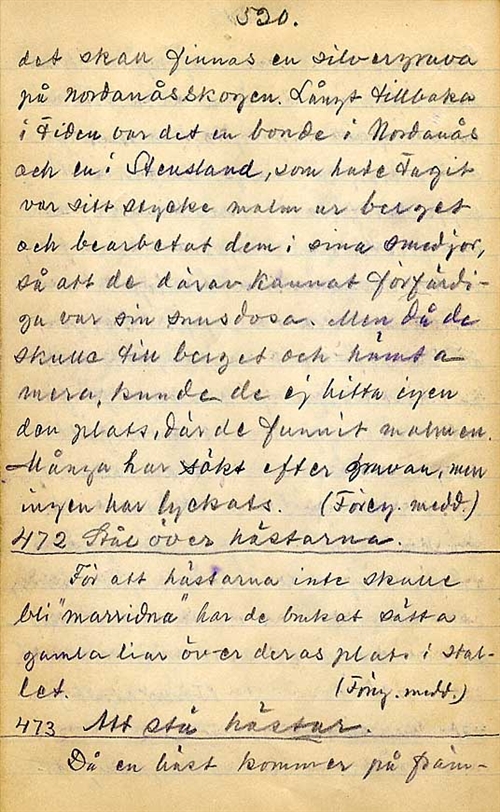 520.
det skall finnas en silvergruva
på Nordanåsskogen. Långt tillbaka
i tiden var det en bonde i Nordanås
och en i Stensland, som hade tagit
var sitt stycke malm ur berget
och bearbetat dem i sina smedjor,
så att de därav kunnat förfärdi-
ga var sin snusdosa. Men då de
skulle till berget och hämta
mera, kunde de ej hitta igen
den plats, där de funnit malmen.
Många har sökt efter gruvan, men
ingen har lyckats. (Föreg. medd.)
472 Stål över hästarna.
För att hästarna inte skulle
bli "marridna" har de brukat sätta
gamla liar över deras plats i stal-
let. (Föreg. medd.)
473 Att stå hästar.
Då en häst kommer på främ-